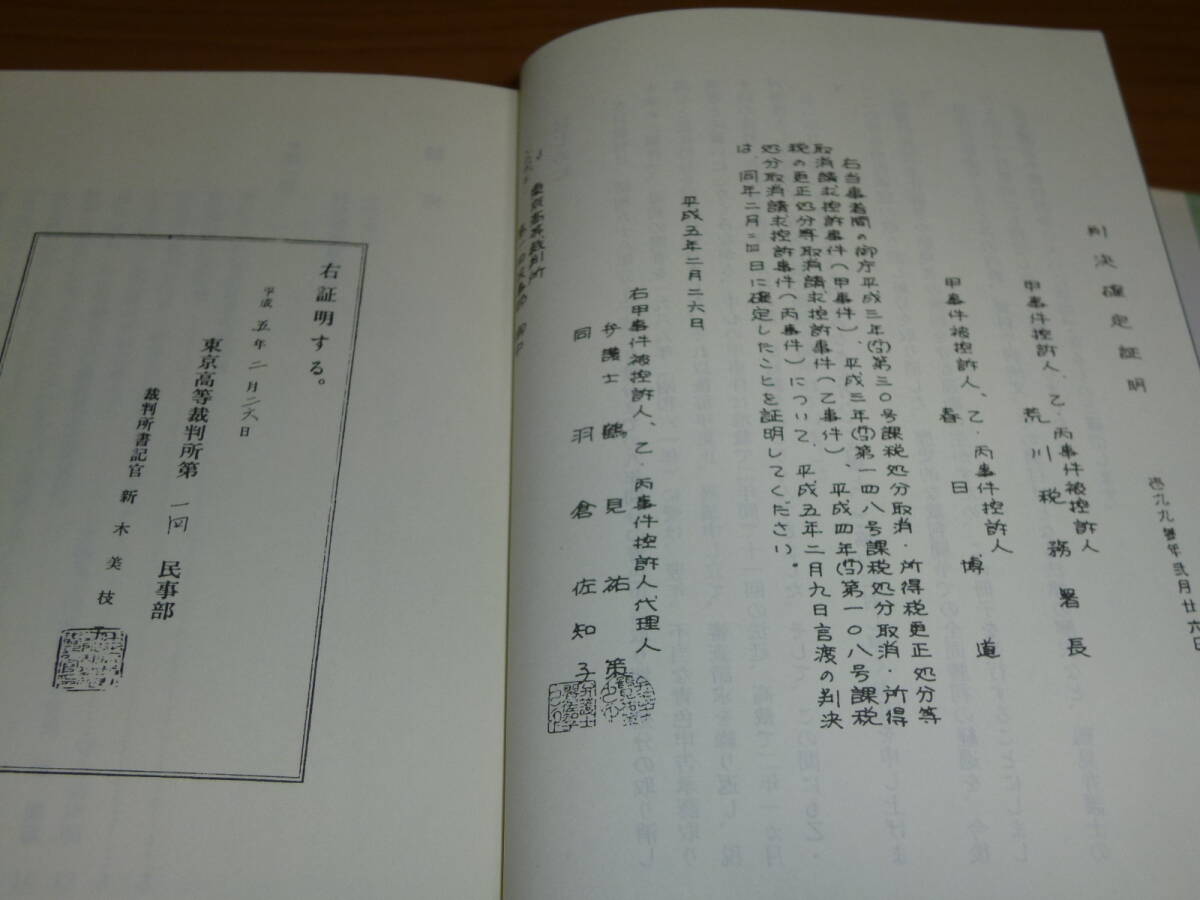 判決確定証明
甲事件控訴人、乙・丙事件被控訴人
荒川税務署長
甲事件被控訴人、乙・丙事件控訴人
春日博道
右当事者間の御庁平成三年(行コ)第三〇号課税処分取消・所得税更正処分等
取消請求控訴事件(甲事件)、平成三年(行コ)第一四八号課税処分取消・所得
税の更正処分等取消請求控訴事件(乙事件)、平成四年(行コ)第一〇八号課税
処分取消請求控訴事件(丙事件)について、平成五年二月九日言渡の判決
は、同年二月二四日に確定したことを証明してください。
平成五年二月二六日
右甲事件被控訴人、乙・丙事件控訴人代理人
弁護士 鶴見祐策
同 羽倉佐知子
東京高等裁判所
右証明する。
平成五年二月二六日
東京高等裁判所第一四民事部
裁判所書記官 新木美枝子